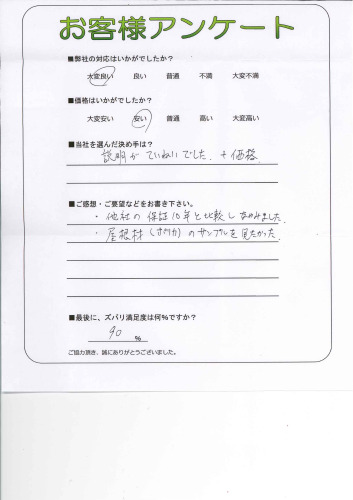 お客様アンケート
■弊社の対応はいかがでしたか?
大変良い 良い 普通 不満 大変不満
■価格はいかがでしたか?
大変安い 安い 普通 高い 大変高い
■当社を選んだ決め手は?
説明がていねいでした + 価格
■ご感想・ご要望などをお書き下さい。
・他社の保証10年と比較しなやみました。
・屋根材 のサンプルを見たかった
■最後に、ズバリ満足度は何%ですか?
90 %
ご協力頂き、誠にありがとうございました。